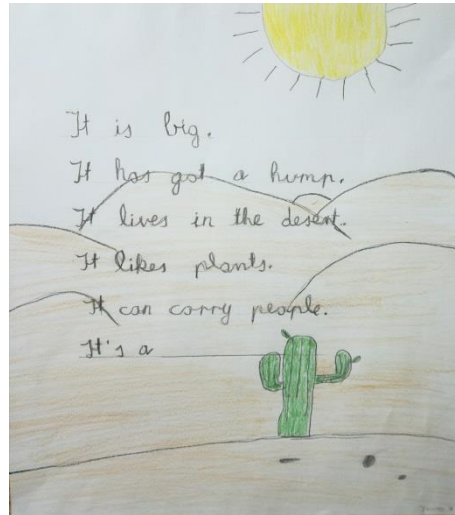 It is big.
It has got a hump.
It lives in the desert.
It likes plants.
It can carry people.
It's a